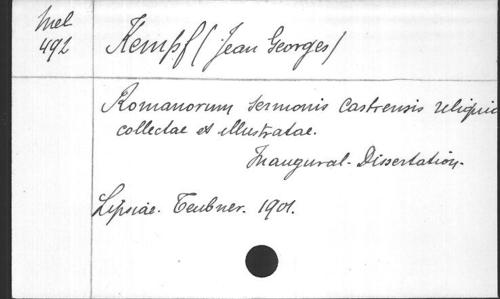 Mel
492
Kempf (Jean Georges)
Romanorum sermonis castrensis reliquiae
collectae et illustratae.
Inaugural-Dissertation.
Lipsiae. Teubner. 1901.